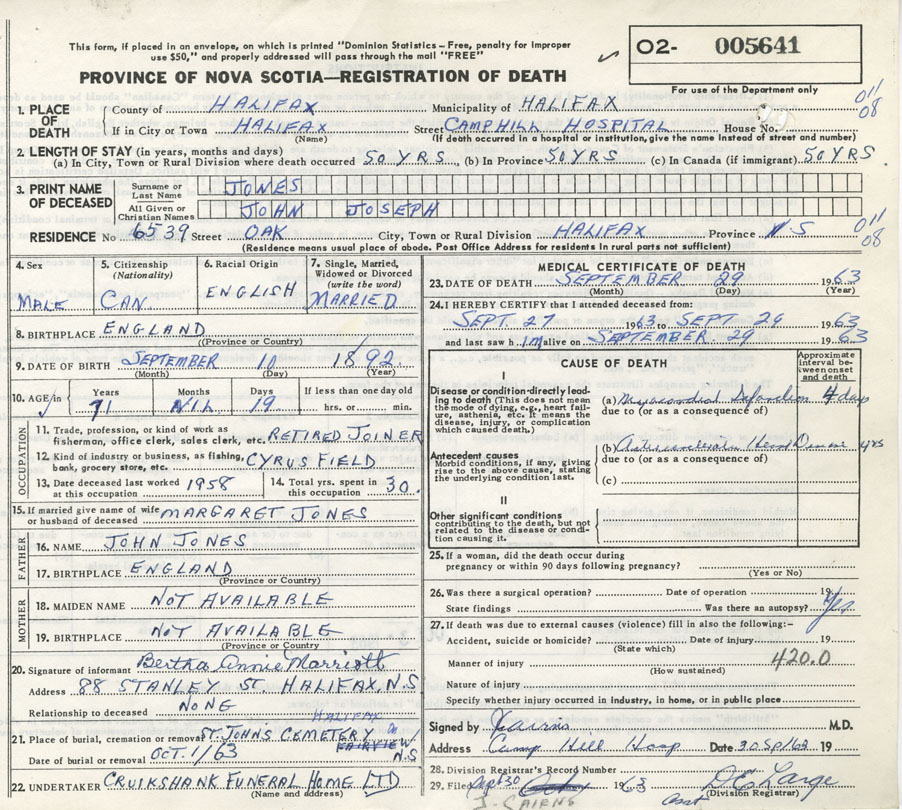 This form, if placed in an envelope, on which is printed "Dominion Statistics – Free, penalty for improper
use $50," and properly addressed will pass through the mail "FREE"
02- 005641
For use of the Department only
PROVINCE OF NOVA SCOTIA—REGISTRATION OF DEATH
1. PLACE OF DEATH
County of HALIFAX Municipality of HALIFAX 011
If in City or Town HALIFAX Street CAMP HILL HOSPITAL House No. 08
(Name) (If death occurred in a hospital or institution, give the name instead of street and number)
2. LENGTH OF STAY (in years, months and days)
(a) In City, Town or Rural Division where death occurred 50 YRS, (b) In Province 50 YRS (c) In Canada (if immigrant) 50 YRS
3. PRINT NAME OF DECEASED
Surname or Last Name JONES
All Given or Christian Names JOHN JOSEPH
RESIDENCE No 6539 Street OAK City, Town or Rural Division HALIFAX Province N.S 011 08
(Residence means usual place of abode. Post Office Address for residents in rural parts not sufficient)
4. Sex
MALE
5. Citizenship
(Nationality)
CAN
6. Racial Origin
ENGLISH
7. Single, Married,
Widowed or Divorced
(write the word)
MARRIED
8. BIRTHPLACE ENGLAND
(Province or Country)
9. DATE OF BIRTH SEPTEMBER 10 1892
(Month) (Day) (Year)
10. AGE in Years Months Days If less than one day old
71 NIL 19 hrs. or min.
OCCUPATION
11. Trade, profession, or kind of work as
fisherman, office clerk, sales clerk, etc. RETIRED JOINER
12. Kind of industry or business, as fishing,
bank, grocery store, etc. CYRUS FIELD
13. Date deceased last worked
at this occupation 1958
14. Total yrs. spent in
this occupation 30.
15. If married give name of wife
or husband of deceased MARGARET JONES
FATHER
16. NAME JOHN JONES
17. BIRTHPLACE ENGLAND
(Province or Country)
MOTHER
18. MAIDEN NAME NOT AVAILABLE
19. BIRTHPLACE NOT AVAILABLE
(Province or Country)
20. Signature of informant Bertha Annie Marriott
Address 88 STANLEY ST. HALIFAX, N.S
Relationship to deceased NONE
HALIFAX
21. Place of burial, cremation or removal ST. JOHNS CEMETERY FAIRVIEW N.S
Date of burial or removal OCT. 1/63
22. UNDERTAKER CRUIKSHANK FUNERAL HOME LTD
(Name and address)
MEDICAL CERTIFICATE OF DEATH
23. DATE OF DEATH SEPTEMBER 29 1963
(Month) (Day) (Year)
24. I HEREBY CERTIFY that I attended deceased from:
SEPT. 27 1963 to SEPT 29 1963
and last saw him alive on SEPTEMBER. 29 1963
CAUSE OF DEATH
Approximate
interval be-
tween onset
and death
I
Disease or condition directly lead-
ing to death (This does not mean
the mode of dying, e.g., heart fail-
ure, asthenia, etc. It means the
disease, injury, or complication
which caused death.)
(a) Myocardial Infarction 4 days
due to (or as a consequence of)
Antecedent causes
Morbid conditions, if any, giving
rise to the above cause, stating
the underlying condition last.
(b) Heart Disease yrs
due to (or as a consequence of)
(c)
II
Other significant conditions
contributing to the death, but not
related to the disease or condi-
tion causing it.
25. If a woman, did the death occur during
pregnancy or within 90 days following pregnancy?
(Yes or No)
26. Was there a surgical operation? Date of operation 19
State findings Was there an autopsy? Yes
27. If death was due to external causes (violence) fill in also the following:-
Accident, suicide or homicide? Date of injury 19
(State which)
Manner of injury 420.0
(How sustained)
Nature of injury
Specify whether injury occurred in industry, in home, or in public place
Signed by M.D.
Address Camp Hill Hosp Date 30 Sp/63 19
28. Division Registrar's Record Number
29. Filed Sept 30 1963 D.E. Large
J. CAIRNS Asst (Division Registrar)